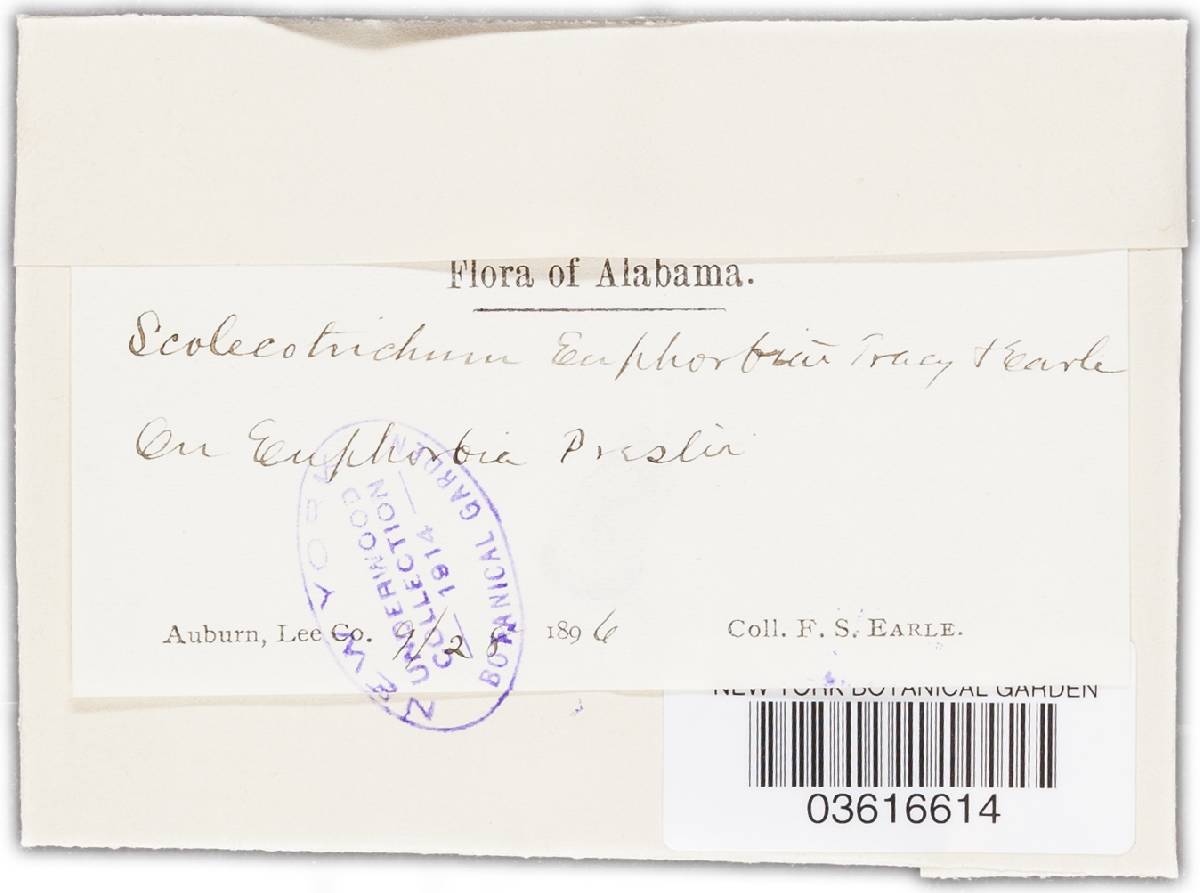 Flora of Alabama.
Scolecotrichum Euphorbiae Tracy & Earle
On Euphorbia Preslii
NEW YORK BOTANICAL GARDEN
UNDERWOOD
COLLECTION
— 1914 —
Auburn, Lee Co. 9/28 1896 Coll. F. S. EARLE.
NEW YORK BOTANICAL GARDEN
03616614